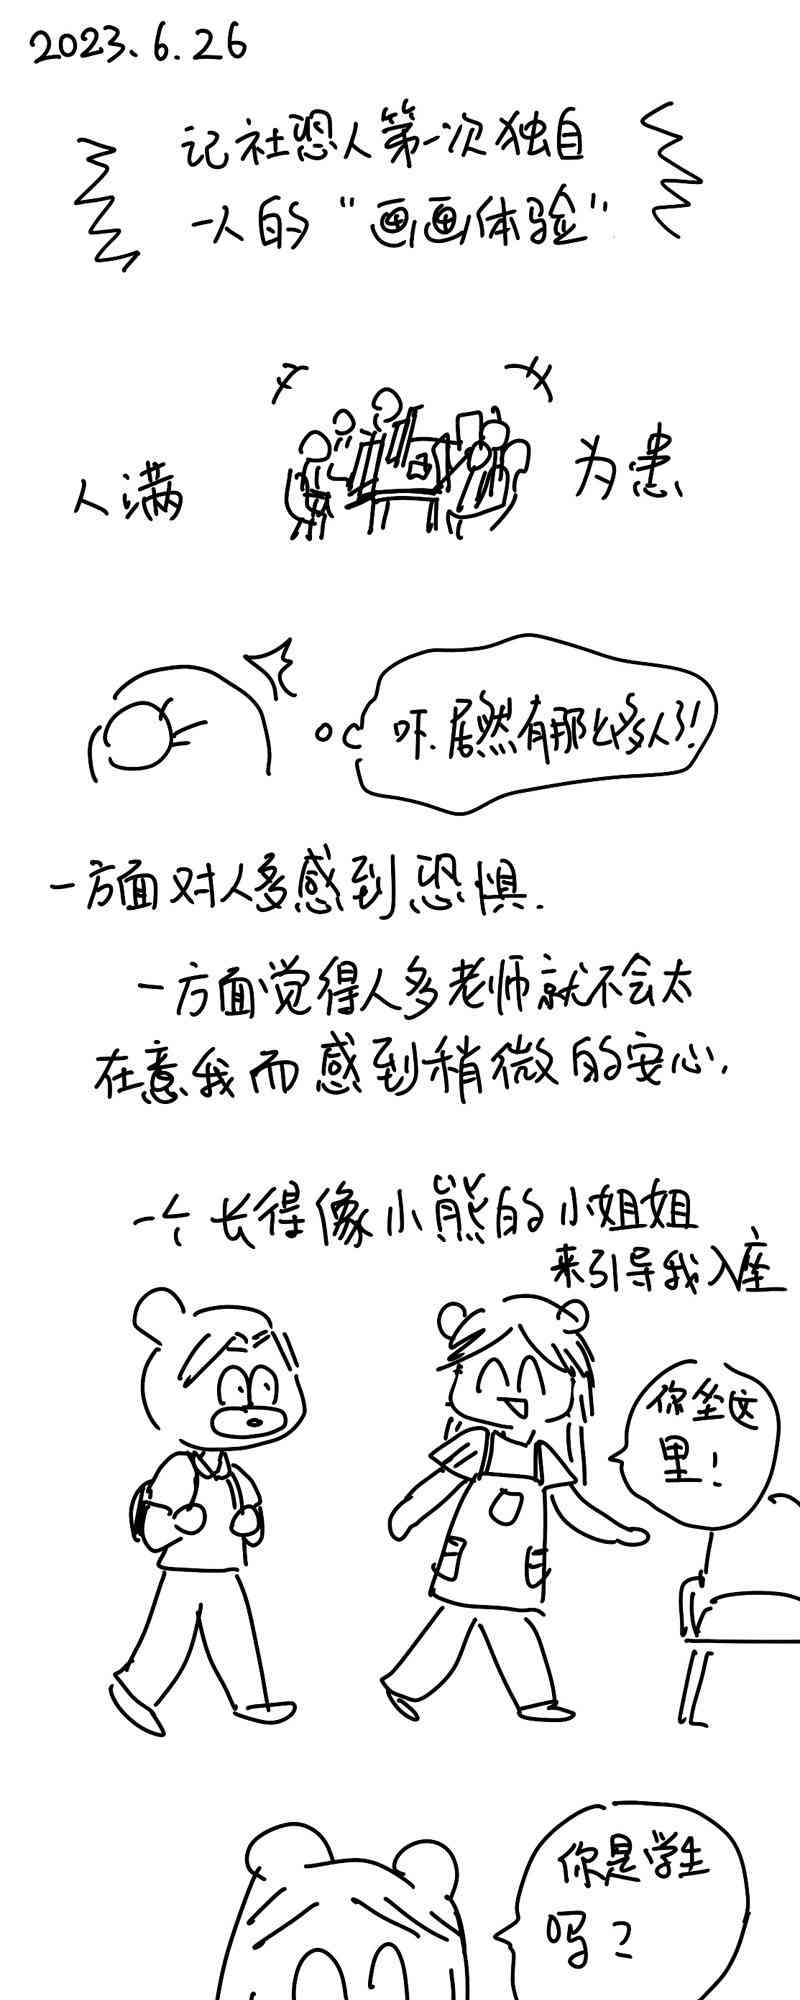 2023.6.26
记社恐人第一次独自
一人的“画画体验”
人满
为患
吓.居然有那么多人了!
一方面对人多感到恐惧.
一方面觉得人多老师就不会太
在意我而感到稍微的安心,
一个长得像小熊的小姐姐
来引导我入座
你坐这
里!
你是学生
吗?